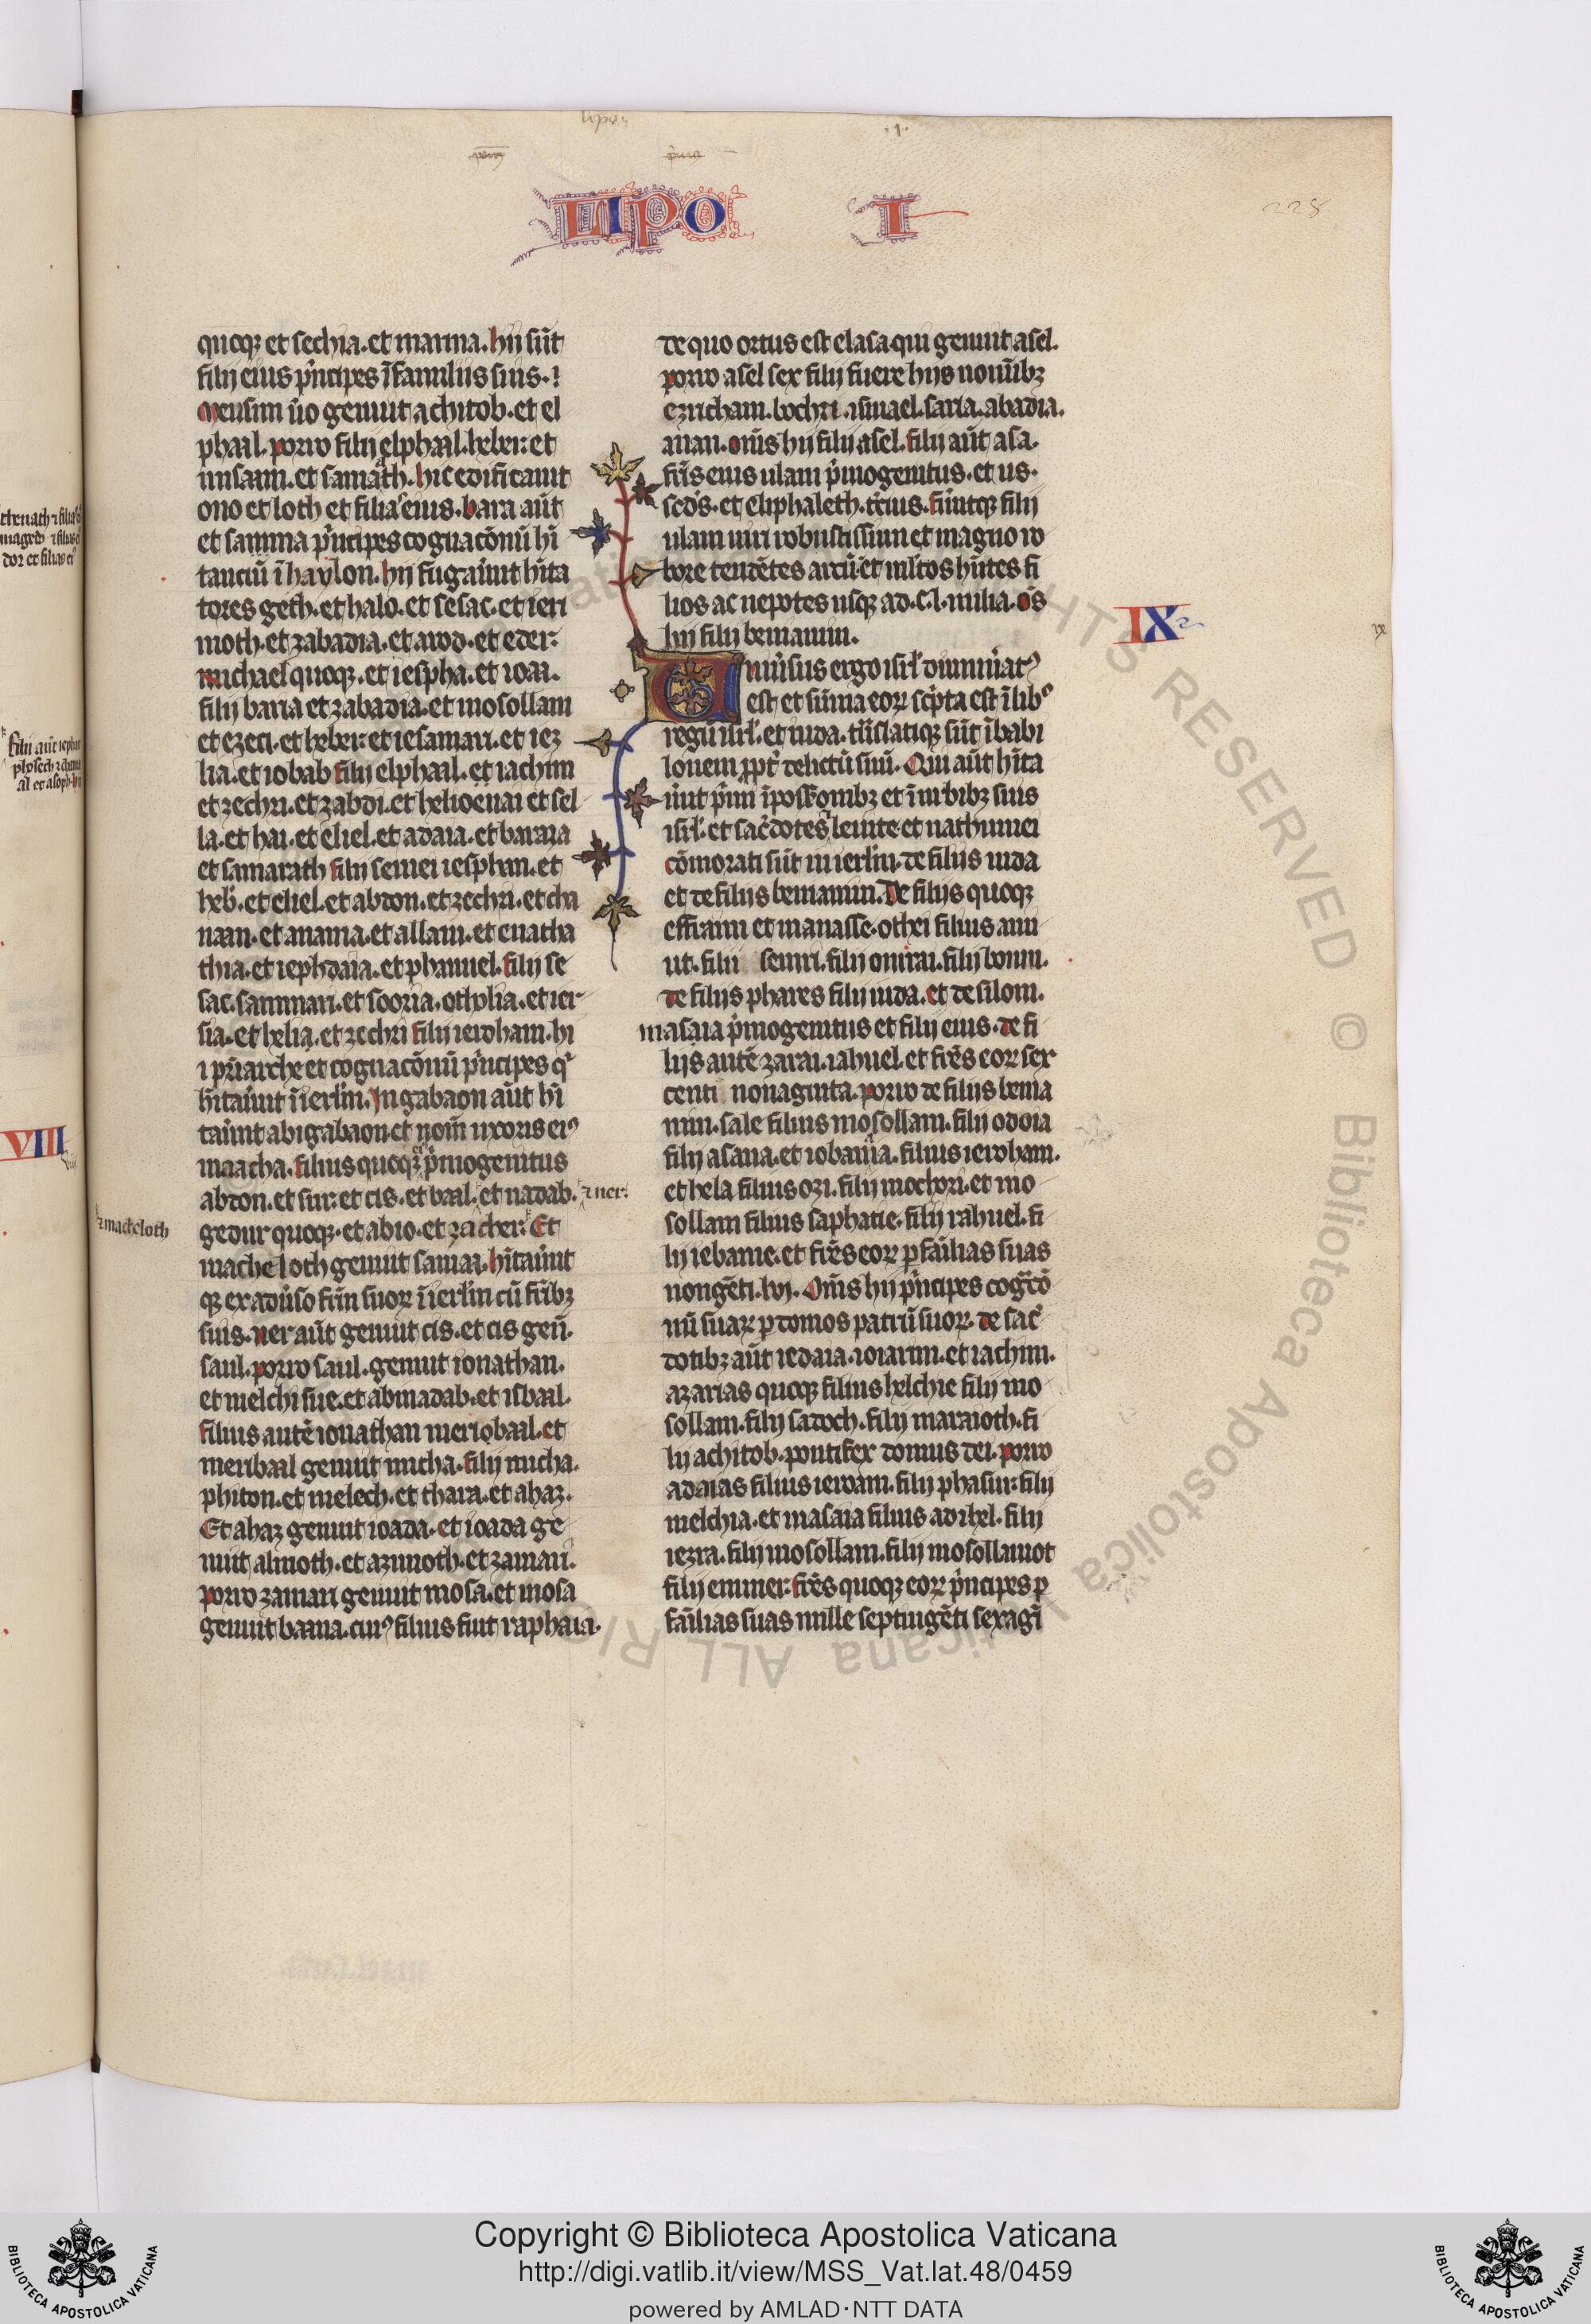 lipo
I
228
quoq; et sechia. et marma. hii sūt
filii eius prīcipes ī familiis suis.
Meusim ūo genuit achitob. et el
phaal. porro filii elphaal. heber. et
missam. et samath. hic edificauit
ono et loth et filia eius. bara aūt
et samma prīcipes cognacōnū hi
tanciū ī haylon. hii fugauūt hīta
tores geth. et haio. et sesac. et ieri
moth. et zabadia. et arod. et eder.
michael quoq;. et iespha. et ioaa.
filii baria et zabadia. et mosollam
et ezeci. et heber. et iesamari. et iez
lia. et iobab filii elphaal. et iachim
et zechri. et zabdi. et helioenai et sel
la. et hai. et eliel. et adaia. et baraia
et samarath filii semei iesphan. et
heb. et eliel. et abdon. et zechri. et cha
naan. et anania. et allam. et enatha
thia. et iephdaia. et phanuel. filii se
sac. sammari. et sooria. otholia. et ier
sia. et helia. et zechri filii ieroham. hi
i pr̄iarche et cognacōnū prīcipes q
hītaūut ī ierlm̄. In gabaon aūt hī
tauūt abigabaon. et nom̄ uxoris ei9
maacha. filius quoq; pr̄mogenitus
abdon. et sur. et cis. et baal. et nadab. ⁊ ner.
⁊ macheloth
gedur quoq;. et ahio. et zacher. Et
macheloth genuit samaa. hītauūt
q; ex aduso frm̄ suoꝝ ī ierlm̄ cū frīb;
suis. ner aūt genuit cis. et cis geñ.
saul. porro saul. genuit ionathan.
et melchisue. et abinadab. et isbaal.
filius autē ionathan meribaal. et
meribaal genuit micha. filii micha.
phiton. et melech. et thara. et ahaz.
Et ahaz genuit ioada. et ioada ge
nuit almoth. et azmoth. et zamari.
porro zamari genuit mosa. et mosa
genuit baana. cui9 filius fuit raphaia.
de quo ortus est elasa qui genuit asel.
porro asel sex filii fuere hiis nomīb;
ezricham. bochri. ismael. saria. abadia.
anan. om̄s hii filii asel. filii aūt asa.
frīs eius ulam pr̄mogenitus. et us.
scd̄s. et eliphaleth. tcius. fūntq; filii
ulam uiri robustissimi et magno ro
bore tendētes arcū. et ml̄tos hn̄tes fi
lios ac nepotes usq; ad .c.l. milia. ōs
hii filii beniamin.
IX
Uniūsus ergo isrl̄ dinumīat9
est et sūma eoꝝ scp̄ta est ī libo
regū isrl̄. et iuda. trn̄slatiq; sūt ī babi
lonem ꝓpt̄ delictū suū. Qui aūt hīta
ūut pr̄mi ī possōnib; et ī urbib; suis
isrl̄. et sac̄dotes leuite et nathinnei
cōmorati sūt in ierlm̄. de filiis iuda
et de filiis beniamin. De filiis quoq;
effraim et manasse. othei filius ami
ut. filii semri. filii omrai. filii bonni.
de filiis phares filii iuda. et de siloni.
masaia pr̄mogenitus et filii eius. de fi
liis autē zarai. iahuel. et frēs eoꝝ sex
centi nonaginta. porro de filiis benia
min. sale filius mosollam. filii odoia
filii asana. et iobania. filius ieroham.
et hela filius ozi. filii mochori. et mo
sollam filius saphatie. filii rahuel. fi
lii iebanie. et frēs eoꝝ ꝑ familias suas
nongēti. lvi. Om̄s hii prīcipes cogc̄o
nū suaꝝ ꝑ domos patrū suoꝝ. de sac̄
dotib; aūt iedaia. ioiarim. et iachim.
azarias quoq; filius helchie filii mo
sollam. filii sadoch. filii maraioth. fi
lii achitob. pontifex domus dei. porro
adaias filius ieroam. filii phasur. filii
melchia. et masaia filius adihel. filii
iezra. filii mosollam. filii mosollamot
filii emmer. frēs quoq; eoꝝ prīcipes ꝑ
familias suas mille septingēti sexagī
VIII
Copyright © Biblioteca Apostolica Vaticana
http://digi.vatlib.it/view/MSS_Vat.lat.48/0459
powered by AMLAD·NTT DATA
BIBLIOTECA APOSTOLICA VATICANA
BIBLIOTECA APOSTOLICA VATICANA